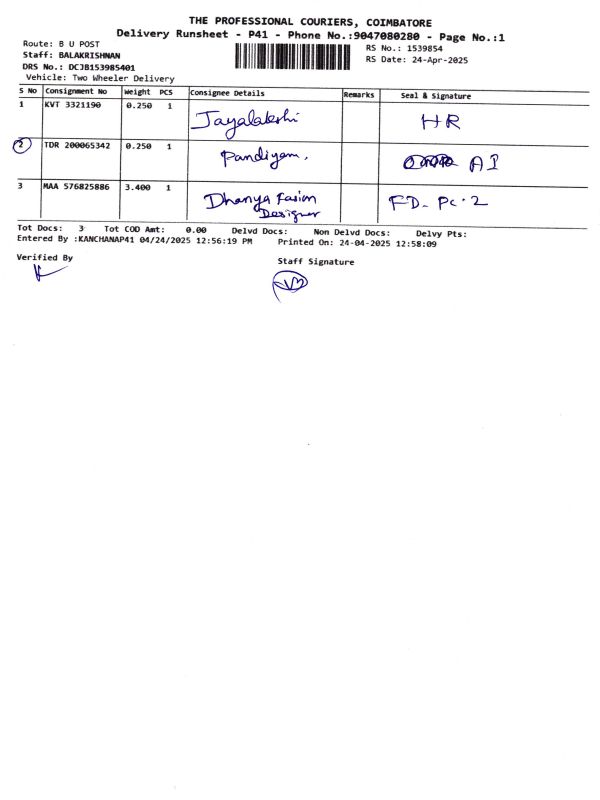 THE PROFESSIONAL COURIERS, COIMBATORE
Delivery Runsheet - P41 - Phone No.:9047080280 - Page No.:1
Route: B U POST
RS No.: 1539854
Staff: BALAKRISHNAN
RS Date: 24-Apr-2025
DRS No.: DCJB153985401
Vehicle: Two Wheeler Delivery
S No Consignment No Weight PCS Consignee Details Remarks Seal & Signature
1 KVT 3321190 0.250 1 Jayalakshi HR
2 TDR 200065342 0.250 1 Pandiyan. AI
3 MAA 576825886 3.400 1 Dhanya Fasion FD- PC-2
Designer
Tot Docs: 3 Tot COD Amt: 0.00 Delvd Docs: Non Delvd Docs: Delvy Pts:
Entered By :KANCHANAP41 04/24/2025 12:56:19 PM Printed On: 24-04-2025 12:58:09
Verified By
Staff Signature